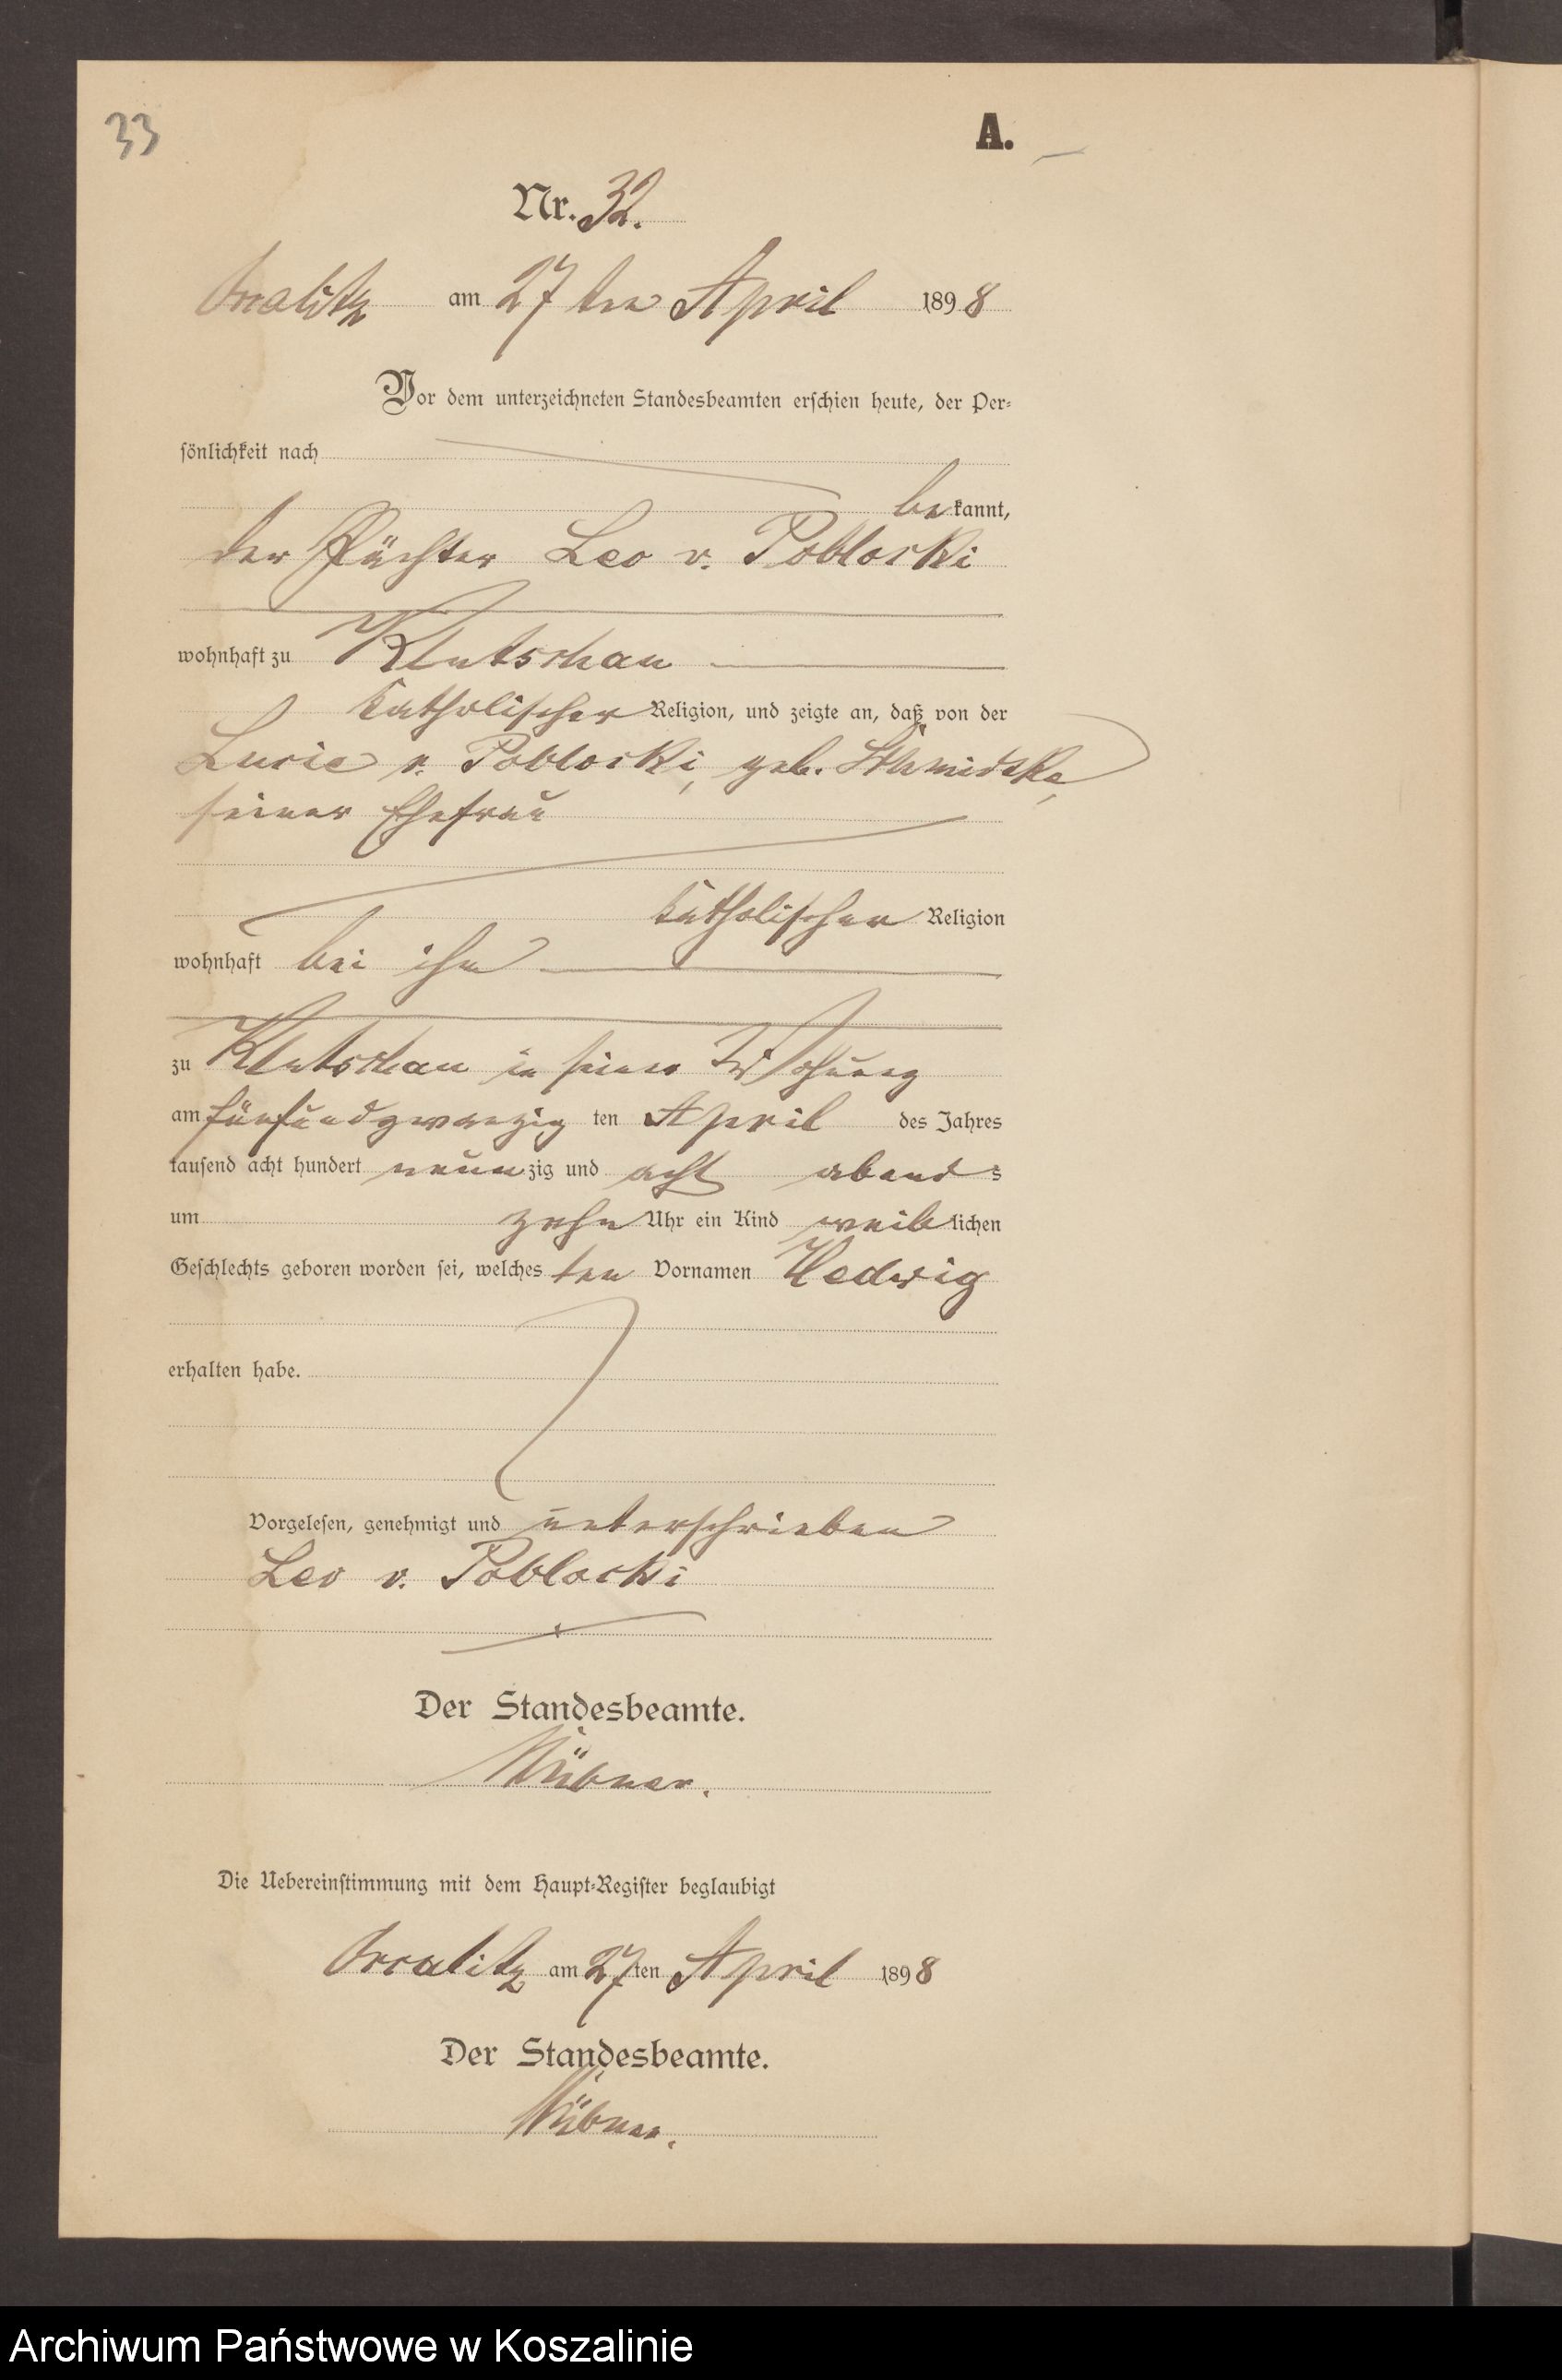 33
A.
Nr. 32.
am 27ten April 1898
Vor dem unterzeichneten Standesbeamten erschien heute, der Per-
sönlichkeit nach
bekannt,
der Pächter Leo v. Poblocki
wohnhaft zu Klutschau
katholischer Religion, und zeigte an, daß von der
Lucie v. Poblocki, geb.
seiner Ehefrau
katholischer Religion
wohnhaft bei ihm
zu Klutschau in seiner Wohnung
am fünfundzwanzigten April des Jahres
tausend acht hundert neunzig und acht abends
um zehn Uhr ein Kind weiblichen
Geschlechts geboren worden sei, welches den Vornamen Hedwig
erhalten habe.
Vorgelesen, genehmigt und unterschrieben
Leo v. Poblocki
Der Standesbeamte.
Die Uebereinstimmung mit dem Haupt-Register beglaubigt
am 27ten April 1898
Der Standesbeamte.
Archiwum Państwowe w Koszalinie